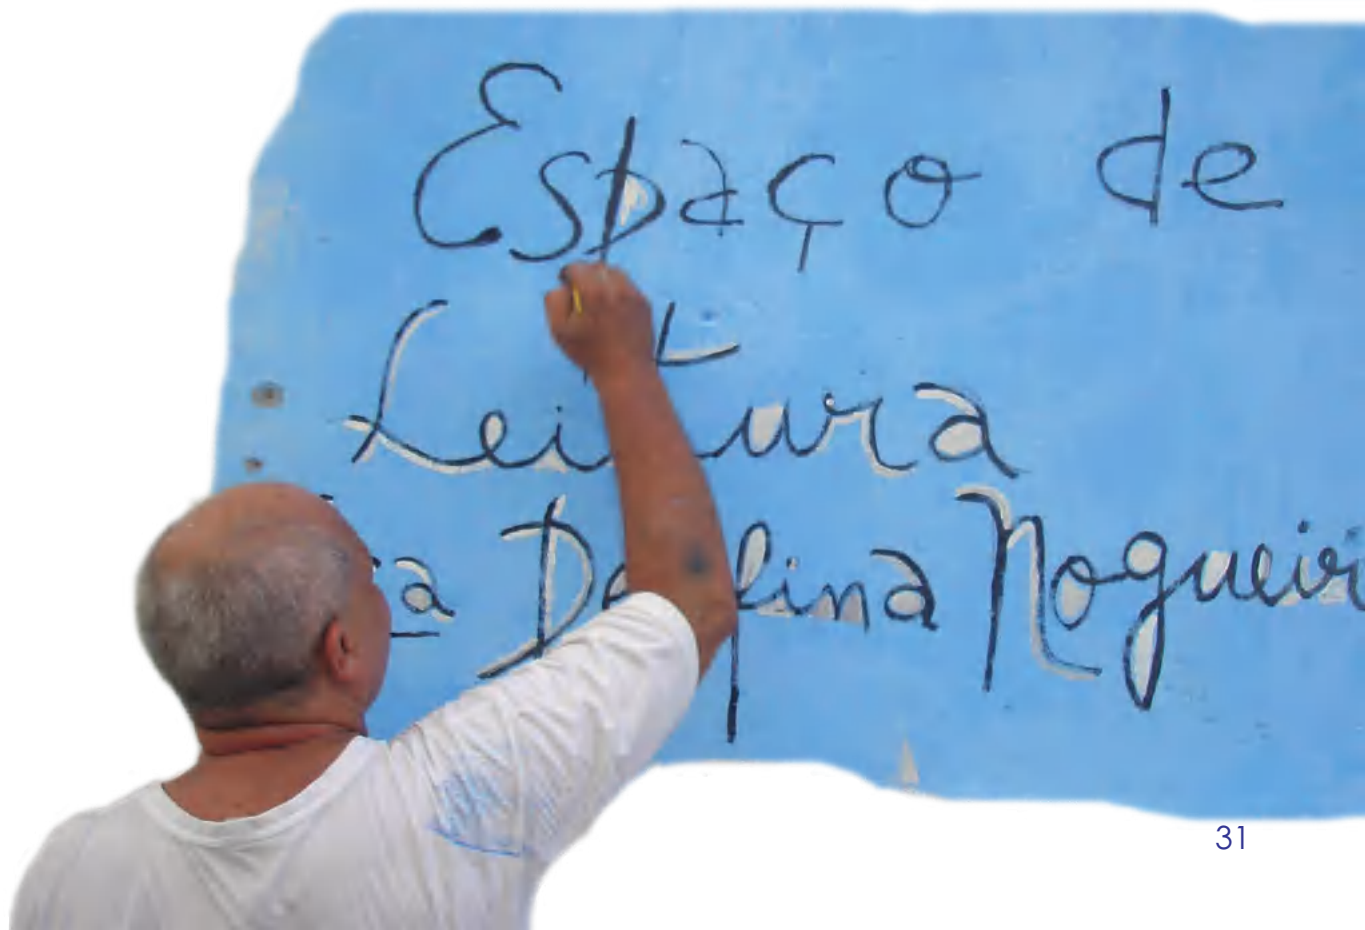 Espaço de
Leitura
Delfina Nogueir
31